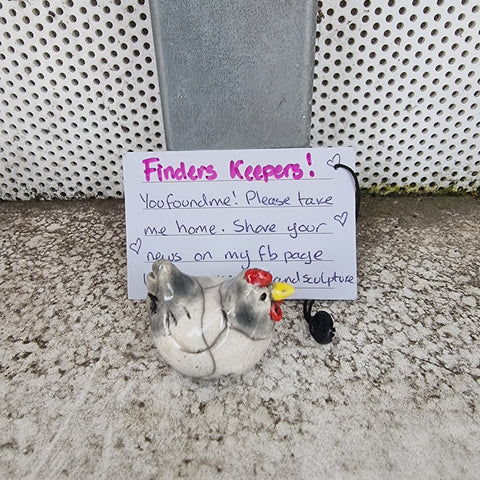 Finders Keepers!
You found me! Please take
me home. Share your
news on my fb page
and sculpture